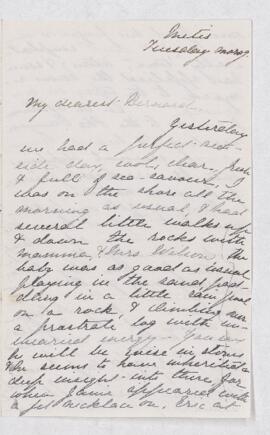 Metis
Tuesday morng.
My dearest Bernard,
Yesterday
we had a perfect sea-
side day, cool, clear, fresh
& full of sea-savour. I
was on the shore all the
morning as usual, & had
several little walks up
& down the rocks with
Mamma, & Mrs. Wilson. The
baby was as good as usual
playing in the sand, pad-
dling in a little rain pool
on a rock, & climbing on
a prostrate log with un-
wearied energy
he will be
he seems to have inherited a
deep insight into them, for
when Jamie appeared with
a fit on, Eric at